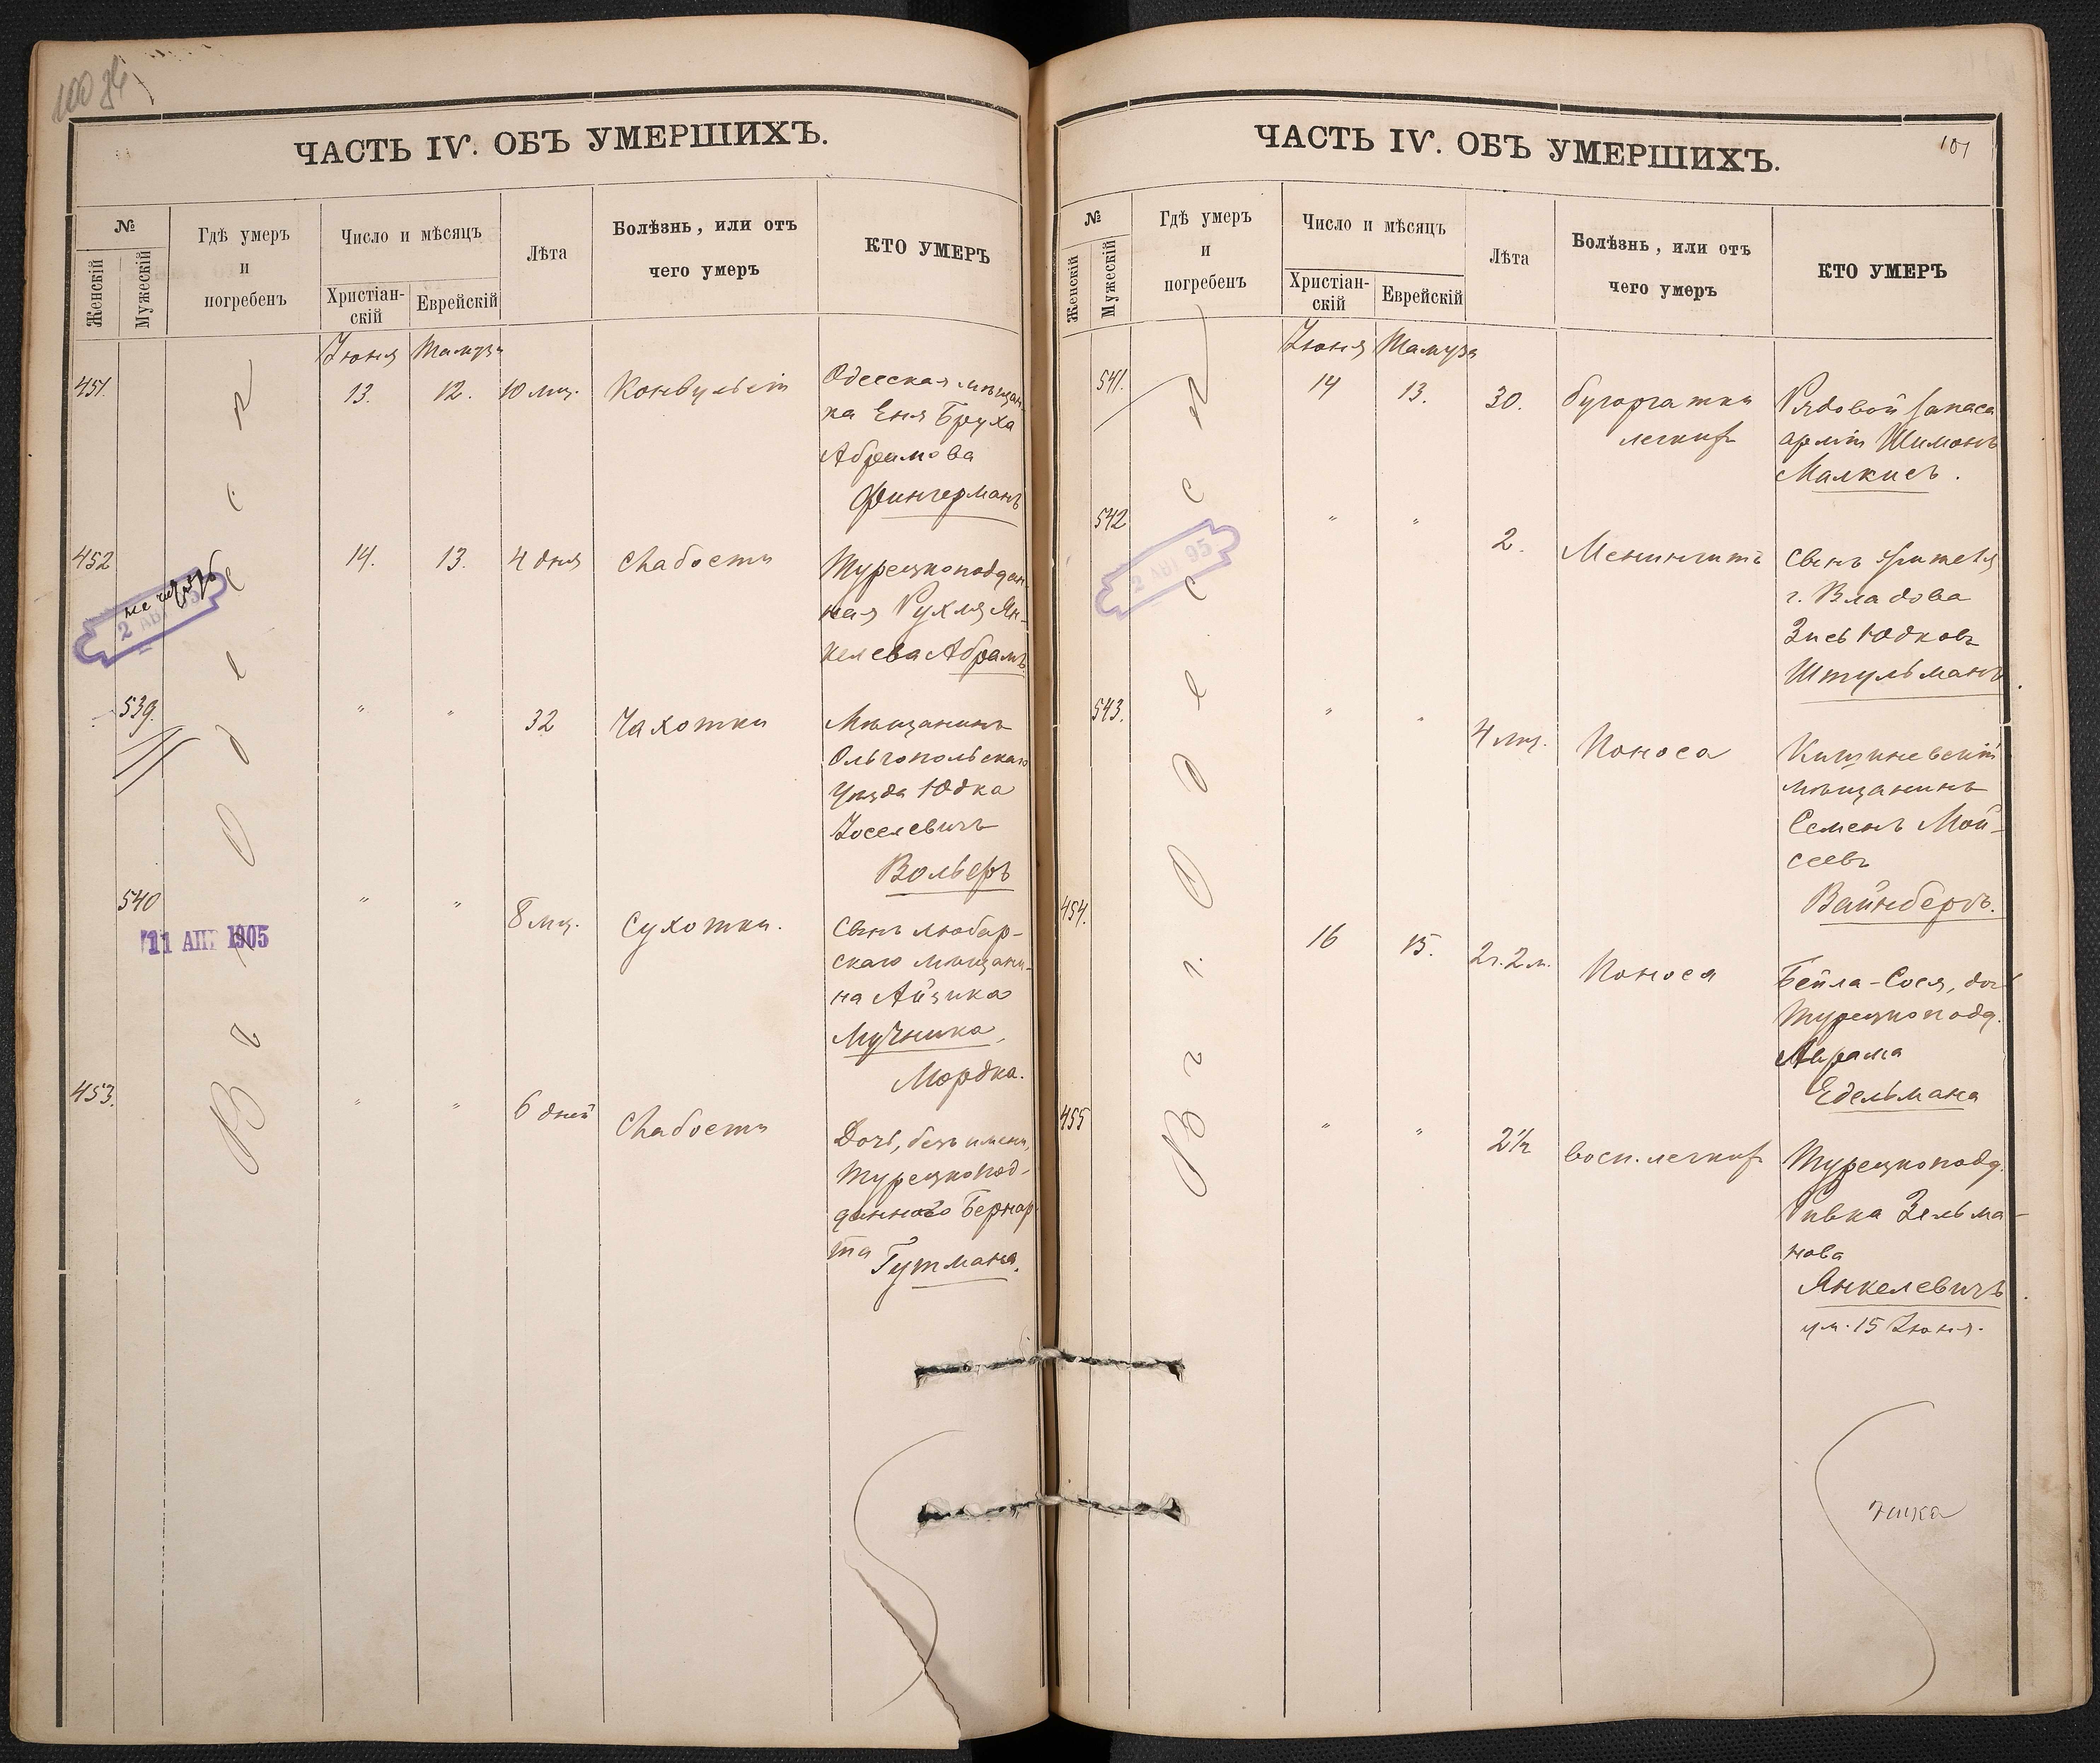 ЧАСТЬ IV. ОБЪ УМЕРШИХЪ.
№
Женскій
Мужескій
Гдѣ умеръ
и
погребенъ
Число и мѣсяцъ
Христіан-
скій
Еврейскій
Лѣта
Болѣзнь, или отъ
чего умеръ
КТО УМЕРЪ
Іюня Тамуза
451. 13. 12. 10 мц. Конвульсіи
Одесская мѣщан-
ка Еня Бруха
Абрамова
Фингерманъ
452 14. 13. 4 дня Слабости
Турецкоподдан-
ная Рухля Ян-
келева Абрамъ.
539. " " 32 Чахотки
Мѣщанинъ
Ольгопольскаго
уѣзда Юдка
Іоселевичъ
Вольферъ
540 " " 8 мц. Сухотки.
Сынъ любар-
скаго мѣщани-
на Айзика
Мучника,
Мордка.
11 АПР 1905
453. " " 6 дней Слабости
Дочь, безъ имени,
Турецкопод-
даннаго Бернар-
та Гутмана.
Въ Одессѣ
ЧАСТЬ IV. ОБЪ УМЕРШИХЪ.
101
№
Женскій
Мужескій
Гдѣ умеръ
и
погребенъ
Число и мѣсяцъ
Христіан-
скій
Еврейскій
Лѣта
Болѣзнь, или отъ
чего умеръ
КТО УМЕРЪ
Іюня Тамуза
541. 14 13. 30. бугорчатки
легкихъ
Рядовой запаса
арміи Шимонъ
Малкисъ.
542 " " 2. Менингитъ
2 АВГ 95
Сынъ жителя
г. Владова
Зись Юдковъ
Штульманъ.
543. " " 4 мц. Поноса
Кишиневскій
мѣщанинъ
Семенъ Мой-
сеевъ
Вайнбергъ.
454. 16 15. 2 г. 2 м. Поноса
Бейла-Сося, дочь
Турецкопод.
Абрама
Едельмана
455 " " 2½ Восп. легкихъ
Турецкопод.
Ривка Зельма-
нова
Янкелевичъ.
ум. 15 Іюня.
Въ Одессѣ